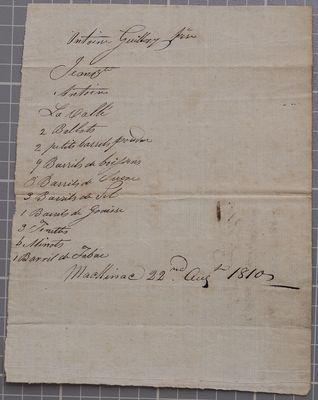 Antoine Guillory père
Jeanot
Antoine
La vallé
2 Ballots
2 petits barrils poudre
9 Barrils de
Barrils de Sucre
3 Barrils de Sel
1 Barrils de Graisse
3
4 Minots
1 Barril de Tabac
Mackinac 22nd Augt 1810